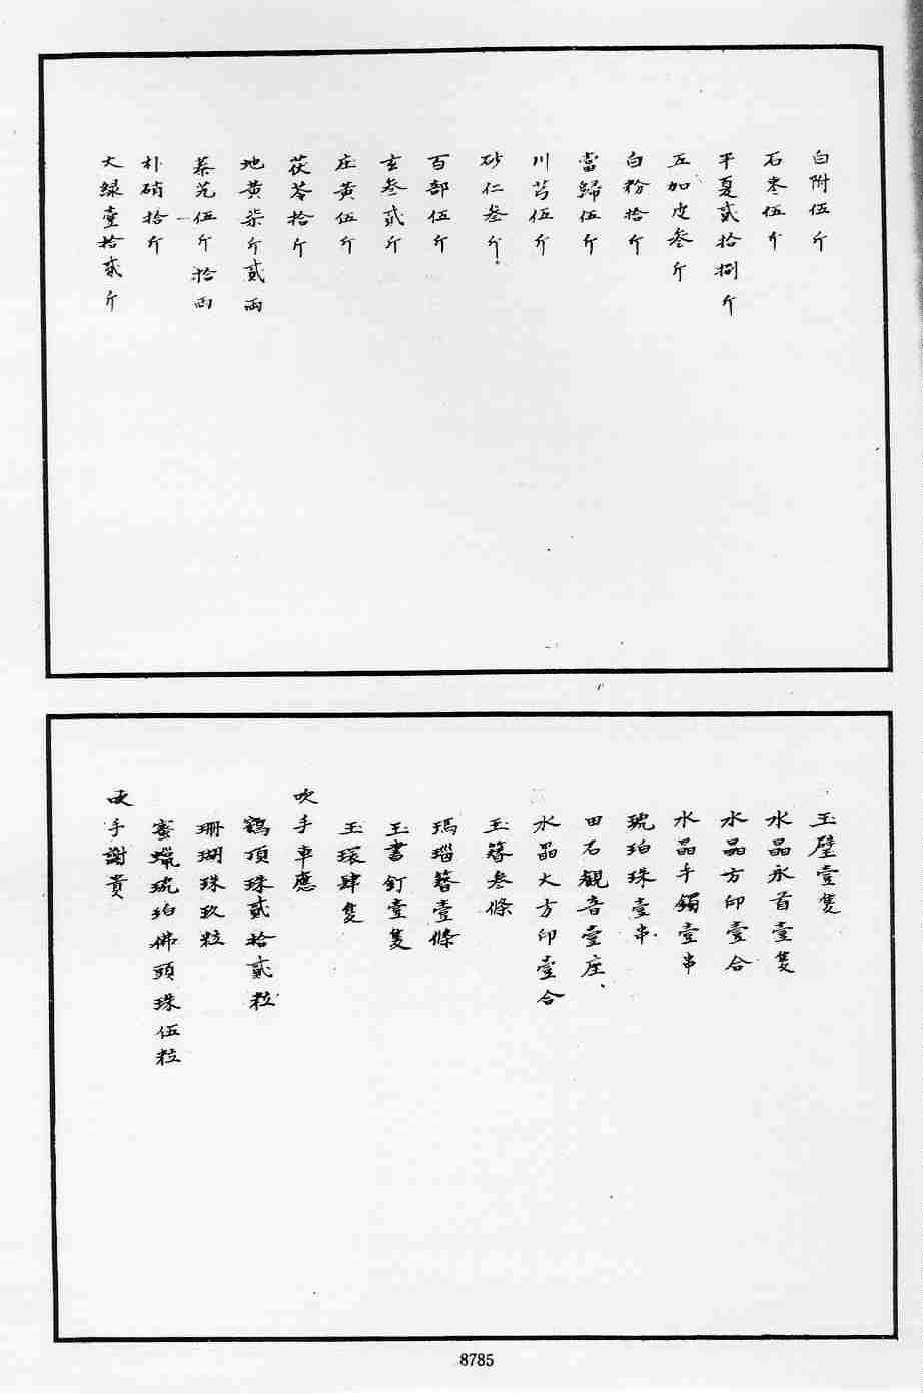 白附伍斤
石枣伍斤
半夏貳拾捌斤
五加皮叁斤
白粉拾斤
當歸伍斤
川芎伍斤
砂仁叁斤
百部伍斤
玄叁貳斤
庄黃伍斤
茯苓拾斤
地黃柒斤貳兩
秦艽伍斤拾兩
朴硝拾斤
大綠壹拾貳斤
玉璧壹隻
水晶水首壹隻
水晶方印壹合
水晶手鐲壹串
琥珀珠壹串
田石觀音壹座
水晶大方印壹合
玉簪叁條
瑪瑙簪壹條
玉書釘壹隻
玉環肆隻
吹手車應
鶴頂珠貳拾貳粒
珊瑚珠玖粒
蜜蠟琥珀佛頭珠伍粒
吹手謝貴
8785